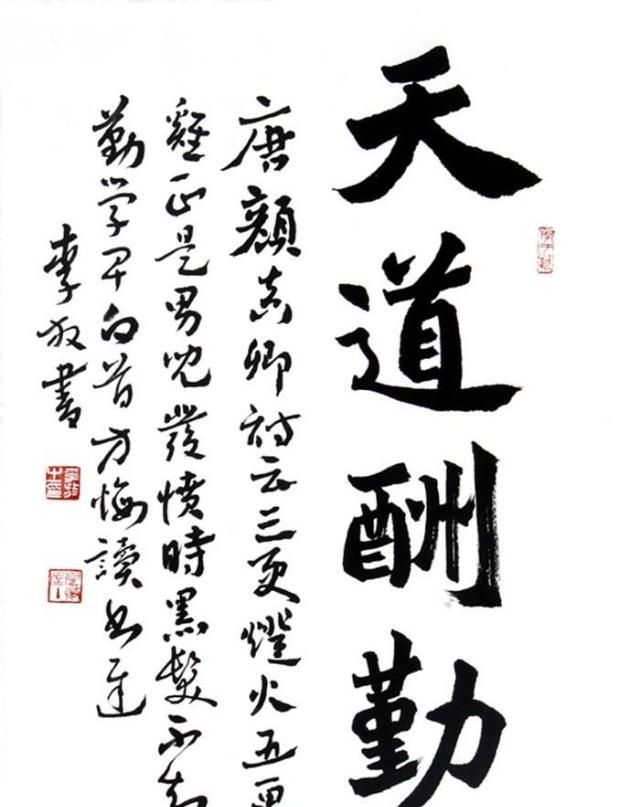 天道酬勤
唐顏真卿詩云三更燈火五更
雞正是男兒發憤時黑髮不知
勤學早白首方悔讀書遲
李書